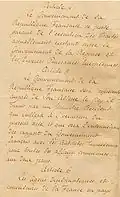 Article 1
Le Gouvernement de la
République Française se porte
garant de l'exécution des Traités
actuellement existant entre le
Gouvernement de la Régence et
les diverses Puissances Européennes.
Article 5
Le Gouvernement de la
République Française sera représenté
auprès de Son Altesse le Bey de
Tunis par un Ministre Résident
qui veillera à l'exécution du
présent acte et qui sera l'intermédiaire
des rapports du Gouvernement
Français avec les autorités Tunisiennes
pour toutes les affaires communes
aux deux pays.
Les Agents diplomatiques et
consulaires de la France en pays